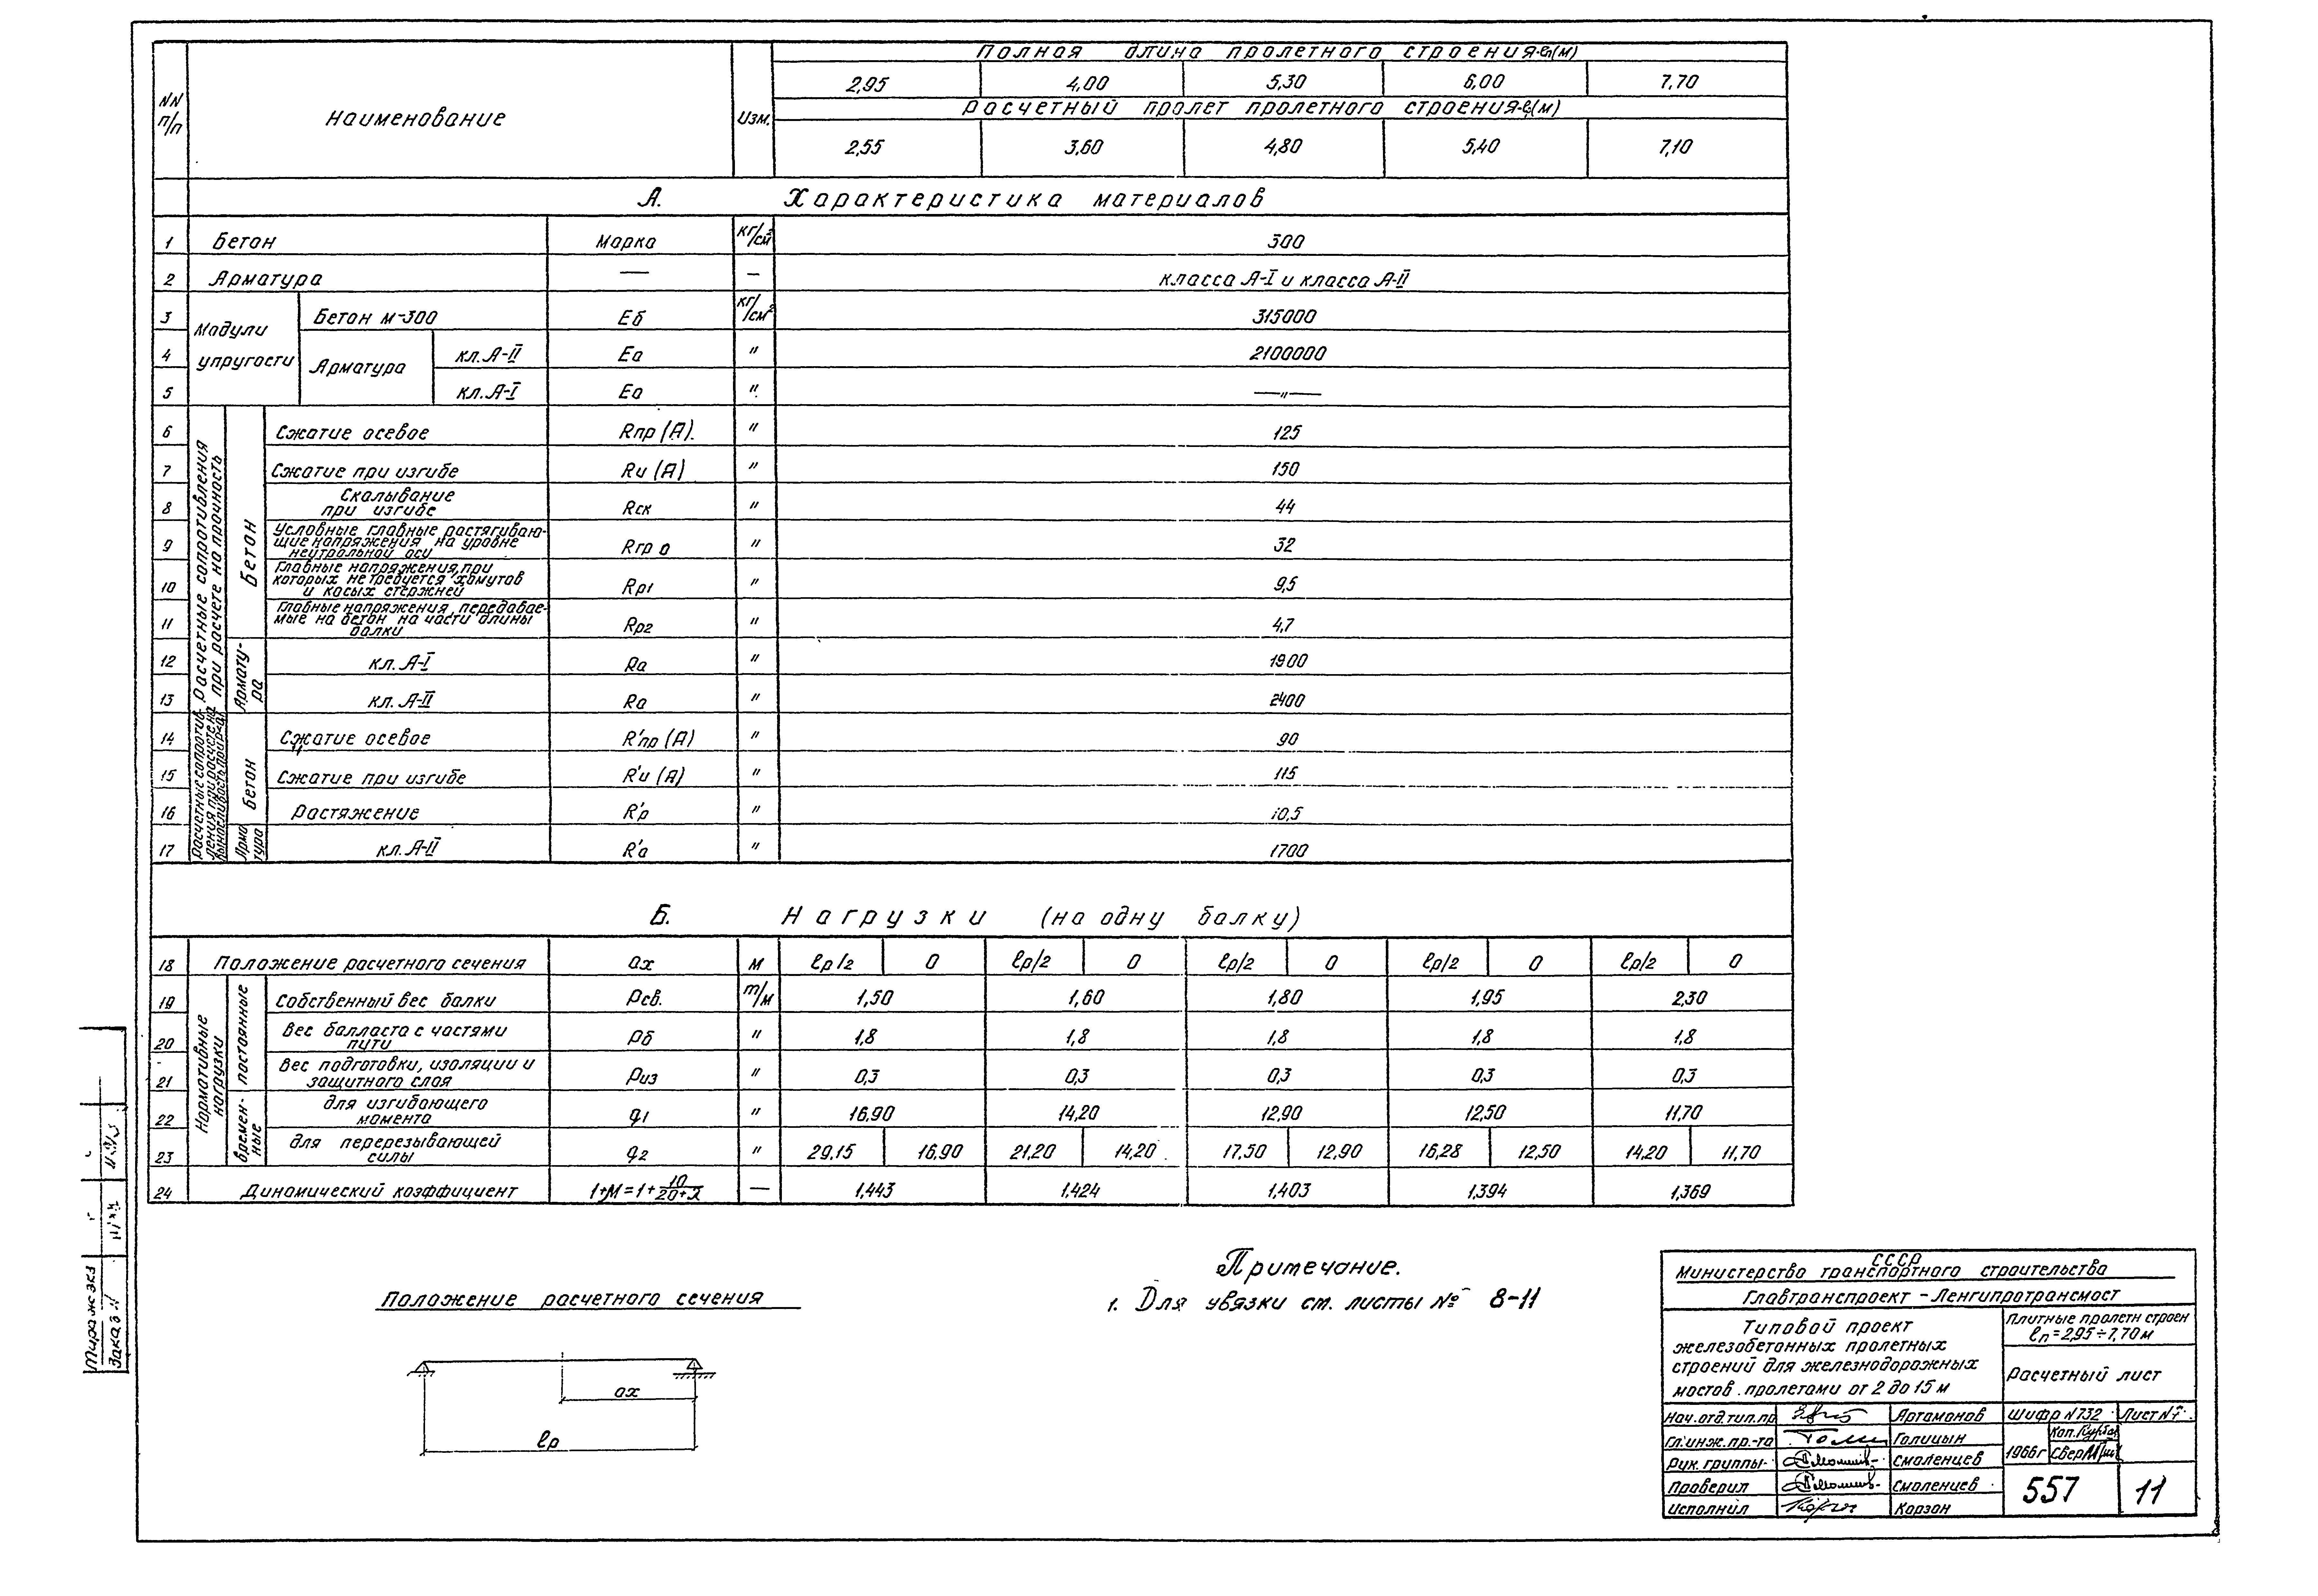 NN п/п
Наименование
Изм.
Полная длина пролетного строения-ℓп(м)
2,95 4,00 5,30 6,00 7,70
Расчетный пролет пролетного строения-ℓр(м)
2,55 3,60 4,80 5,40 7,10
А. Характеристика материалов
1 Бетон Марка кг/см² 300
2 Арматура — — класса А-I и класса А-II
Модули упругости
3 Бетон м-300 Еб кг/см² 315000
Арматура
4 кл. А-II Еа " 2100000
5 кл. А-I Еа " —"—
Расчетные сопротивления при расчете на прочность
Бетон
6 Сжатие осевое Rпр (А) " 125
7 Сжатие при изгибе Rи (А) " 150
8 Скалывание при изгибе Rск " 44
9 Условные главные растягиваю-
щие напряжения на уровне
нейтральной оси Rгр о " 32
10 Главные напряжения, при
которых не требуется хомутов
и косых стержней Rр1 " 9,5
11 Главные напряжения, передавае-
мые на бетон на части длины
балки Rр2 " 4,7
Армату-
ра
12 кл. А-I Rа " 1900
13 кл. А-II Rа " 2400
Расчетные сопротив-
ления при расчете на
Бетон
14 Сжатие осевое R'пр (А) " 90
15 Сжатие при изгибе R'и (А) " 115
16 Растяжение R'р " 10,5
Арма
тура
17 кл. А-II R'а " 1700
Б. Нагрузки (на одну балку)
18 Положение расчетного сечения ах м ℓр/2 0 ℓр/2 0 ℓр/2 0 ℓр/2 0 ℓр/2 0
Нормативные нагрузки
постоянные
19 Собственный вес балки Рсв. т/м 1,50 1,60 1,80 1,95 2,30
20 Вес балласта с частями
пути Рб " 1,8 1,8 1,8 1,8 1,8
21 Вес подготовки, изоляции и
защитного слоя Риз " 0,3 0,3 0,3 0,3 0,3
времен-
ные
22 для изгибающего
момента q1 " 16.90 14,20 12,90 12,50 11,70
23 для перерезывающей
силы q2 " 29,15 16,90 21,20 14,20 17,50 12,90 16,28 12,50 14,20 11,70
24 Динамический коэффициент 1+М=1+10/20+λ — 1,443 1,424 1,403 1,394 1,369
Положение расчетного сечения
ах
ℓр
Примечание.
1. Для увязки см. листы № 8-11
СССР
Министерство транспортного строительства
Главтранспроект - Ленгипротрансмост
Типовой проект
железобетонных пролетных
строений для железнодорожных
мостов. пролетами от 2 до 15 м
Плитные пролетн строен
ℓп = 2,95÷7,70 м
Расчетный лист
Нач. отд. тип. пр Артамонов
Гл. инж. пр.-та Голицын
Рук. группы Смоленцев
Проверил Смоленцев
Исполнил Корзон
Шифр N732 Лист N7
1966г
Коп.
Свер.
557 11
Тираж экз
Заказ N